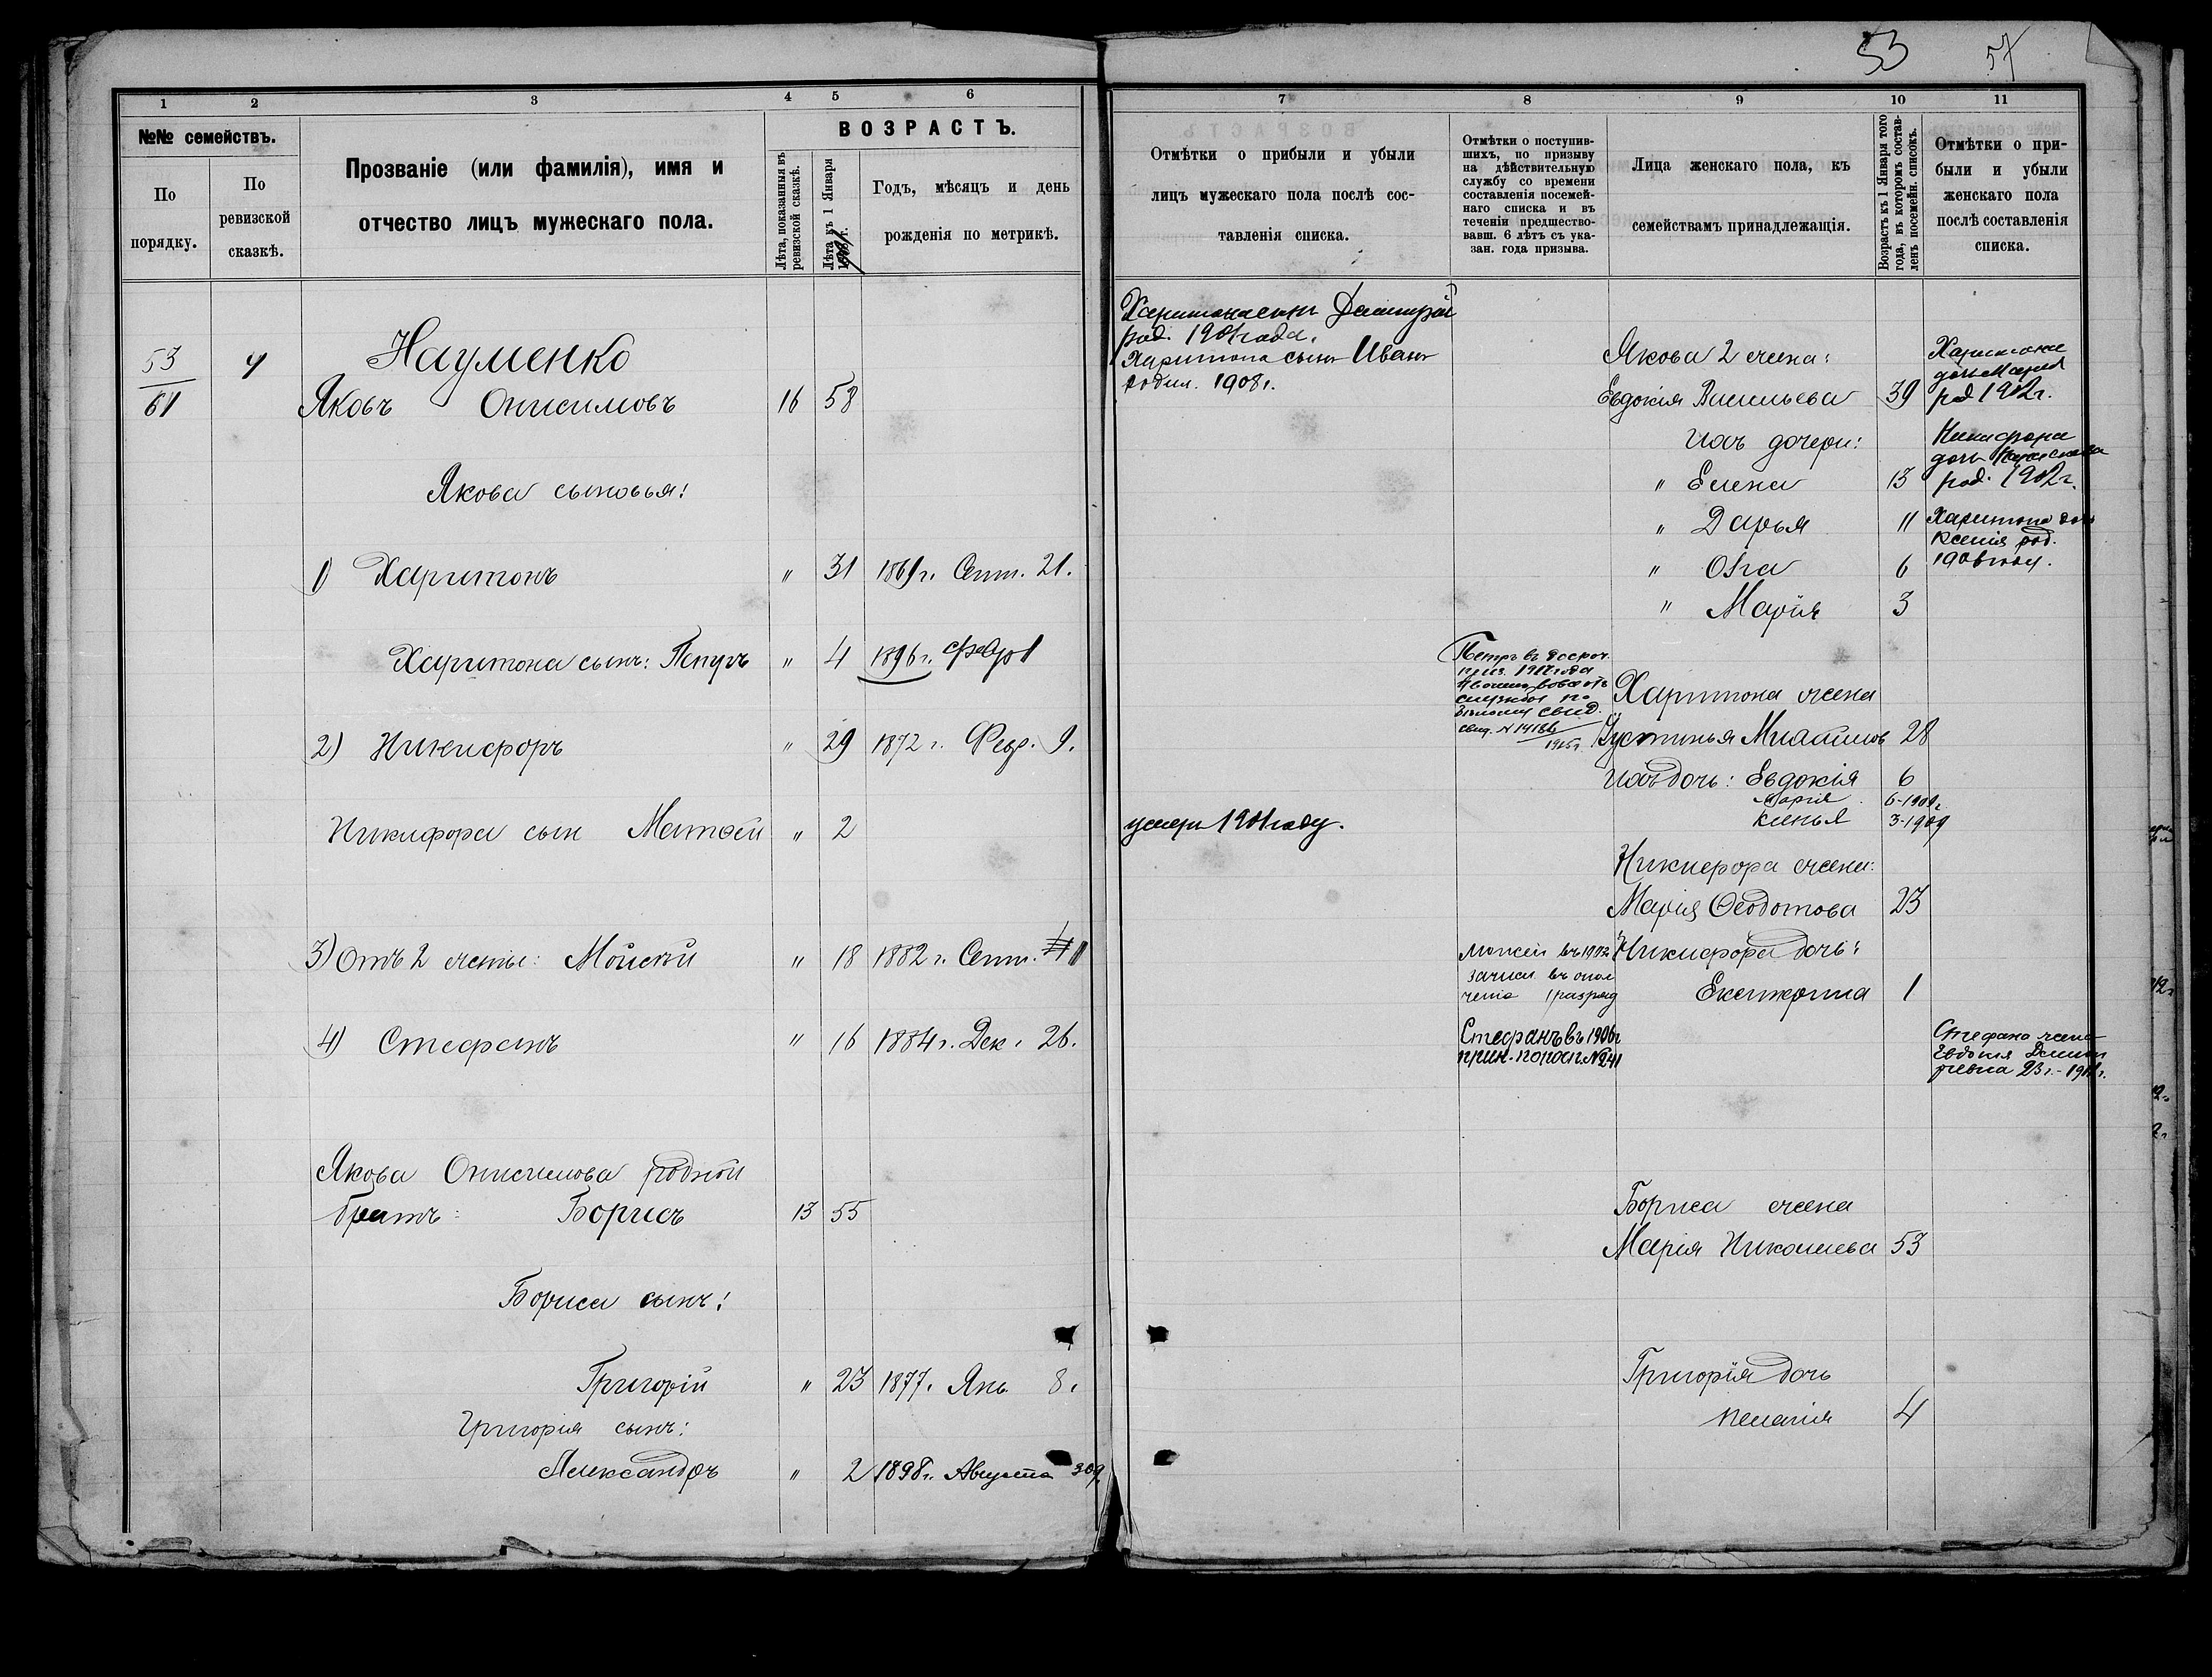 53 57
1 2 3 4 5 6
№№ семействъ.
По порядку.
По ревизской сказкѣ.
Прозваніе (или фамилія), имя и
отчество лицъ мужескаго пола.
ВОЗРАСТЪ.
Лѣта, показанныя въ ревизской сказкѣ.
Лѣта къ 1 Января
Годъ, мѣсяцъ и день
рожденія по метрикѣ.
53 4 Науменко
61 Яковъ Онисимовъ 16 58
Якова сыновья:
1) Харитонъ " 31 1869 г. Сент. 21.
Харитона сынъ: Петръ " 4 1896 г. февр 1
2) Никифоръ " 29 1872 г. Февр. 9.
Никифора сын Матѳей " 2
3) Отъ 2 жены: Мойсей " 18 1882 г. Сент. 1
4) Стефанъ " 16 1884 г. Дек. 26.
Якова Онисимова родной
братъ: Борисъ 13 55
Бориса сынъ:
Григорій " 23 1877. Янв. 8.
Григорія сынъ:
Александръ " 2 1898 г. Августа 30
7 8 9 10 11
Отмѣтки о прибыли и убыли
лицъ мужескаго пола послѣ сос-
тавленія списка.
Отмѣтки о поступив-
шихъ, по призыву
на дѣйствительную
службу со времени
составленія посемей-
наго списка и въ
теченіи предшество-
вавш. 6 лѣтъ съ ука-
зан. года призыва.
Лица женскаго пола, къ
семействамъ принадлежащія.
Возрастъ къ 1 Января того
года, въ которомъ состав-
ленъ посемейн. списокъ.
Отмѣтки о при-
были и убыли
женскаго пола
послѣ составленія
списка.
Харитона сынъ Димитрій
род. 1901 года.
Харитона сынъ Иванъ
родил. 1908 г.
Якова 2 жена:
Евдокія Васильева 39
Ихъ дочери:
" Елена 13
" Дарья 11
" Ольга 6
" Марія 3
Харитона
дочь Марія
род 1902 г.
Никифора
дочь
род. 1902 г.
Харитона дочь
Ксенія род.
Петръ въ досроч.
Харитона жена
Устинья 28
Ихъ дочь: Евдокія 6
Марія 6-1909 г.
3-1909
умеръ 1901 году.
Никифора жена:
Марія Ѳеодотова 23
Никифора дочь:
Екатерина 1
Мойсей въ 1902
зачисл. въ опол
ченіе 1 разряд
Стефанъ въ 1906 г
прин. по №241
Стефана жена
Евдокія
23 г.
Бориса жена
Марія Николаева 53
Григорія дочь
Пелагія 4